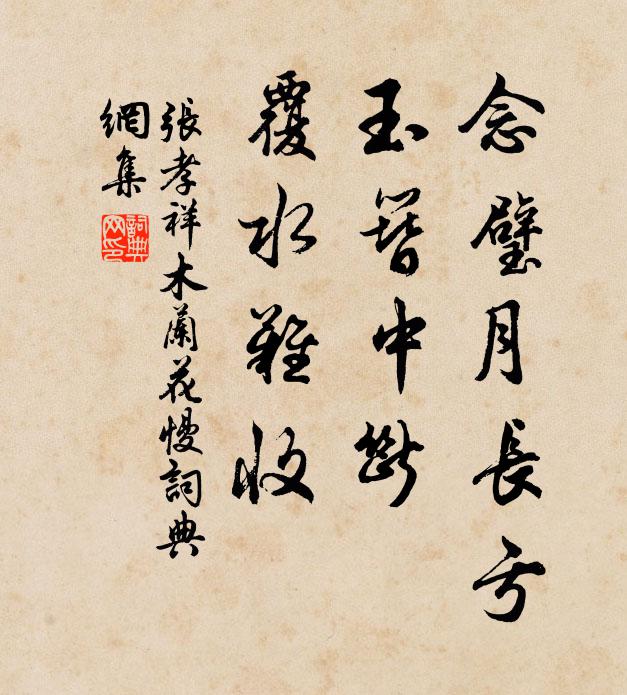 念璧月長亏
玉簪中斷
覆水難收
張孝祥木蘭花慢詞典
網集
詞典
网印